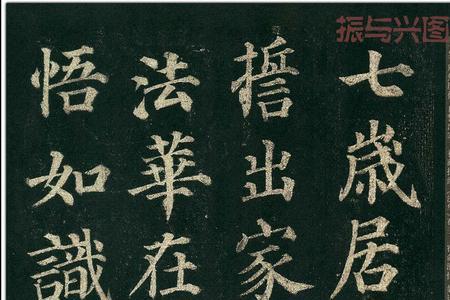 振与兴图
七歲居
誓出家
法華在
悟如識